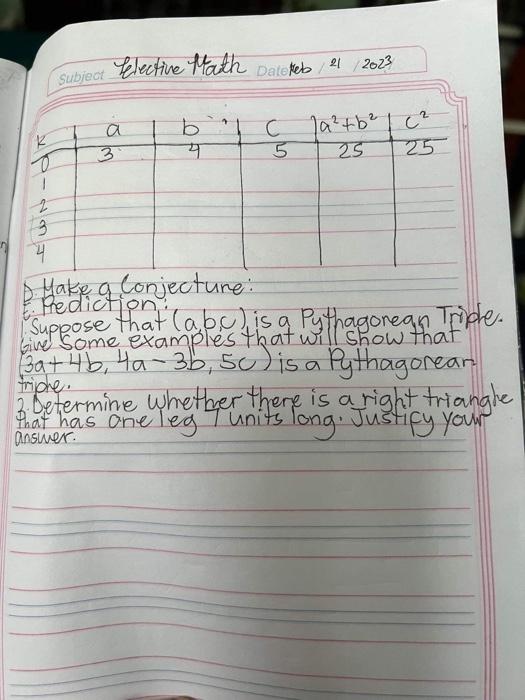 Subject Elective Math Date Feb / 21 / 2023
K a b c a²+b² c²
0 3 4 5 25 25
1
2
3
4
D. Make a Conjecture:
E. Prediction:
1. Suppose that (a,b,c) is a Pythagorean Triple.
Give some examples that will show that
(3a+4b, 4a-3b, 5c) is a Pythagorean
triple.
2. Determine whether there is a right triangle
that has one leg 7 units long. Justify your
answer.